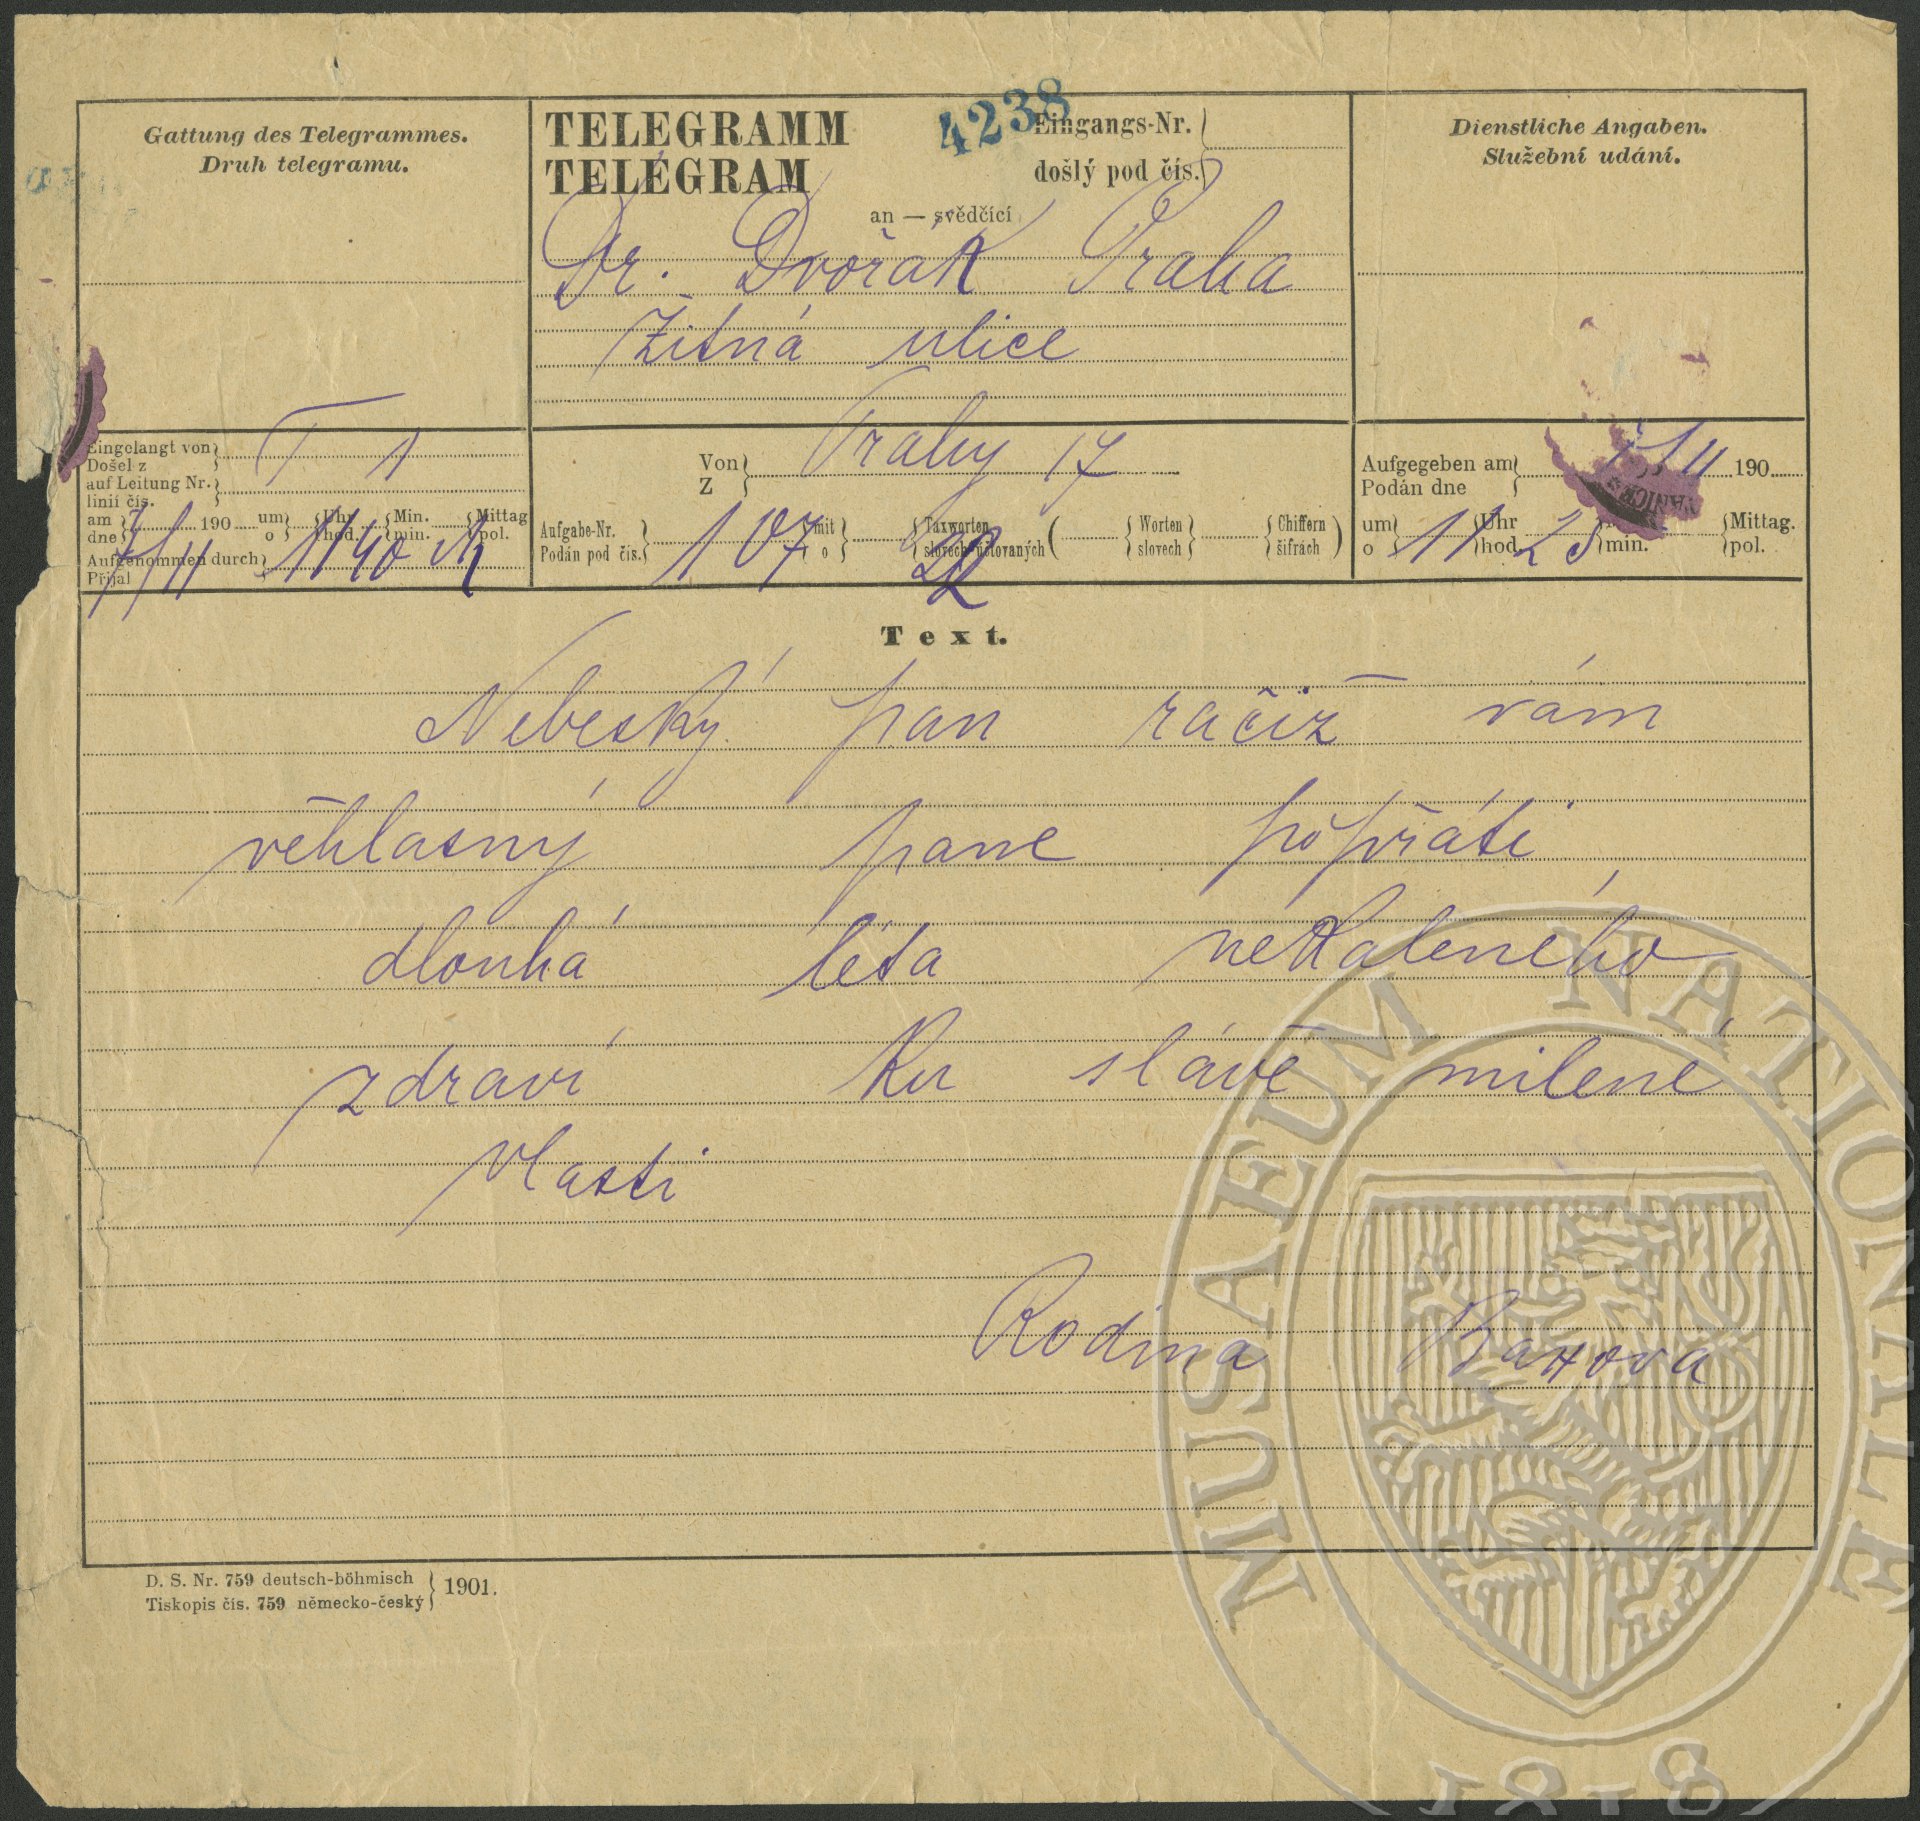 Gattung des Telegrammes.
Druh telegramu.
TELEGRAMM
TELEGRAM
4238
Eingangs-Nr.
došlý pod čís.
an — svědčící
Dienstliche Angaben.
Služební udání.
Dr. Dvořák Praha
Žitná ulice
Eingelangt von
Došel z
T 1
auf Leitung Nr.
linií čís.
am
dne
7/11
190
um
o
11
Uhr
hod.
40
Min.
min.
Mittag
pol.
Aufgenommen durch
Přijal
Von
Z
Prahy 17
Aufgabe-Nr.
Podán pod čís.
107
mit
o
22
Taxworten
slovech účtovaných
Worten
slovech
Chiffern
šifrách
Aufgegeben am
Podán dne
7/11
190
um
o
11
Uhr
hod
25
min.
Mittag.
pol.
Text.
Nebeský pan račiž vám
věhlasný pane popřáti
dlouhá léta nekaleného
zdraví ku slávě milené
vlasti
Rodina
D. S. Nr. 759 deutsch-böhmisch
Tiskopis čís. 759 německo-český
1901.
MUSAEUM NATIONALE
1818